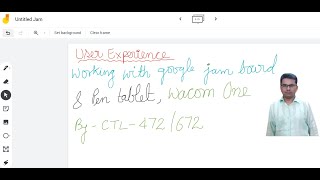 Untitled Jam
Set background Clear frame
User Experience
Working with google jam board
& Pen tablet, Wacom One
By - CTL-472/672